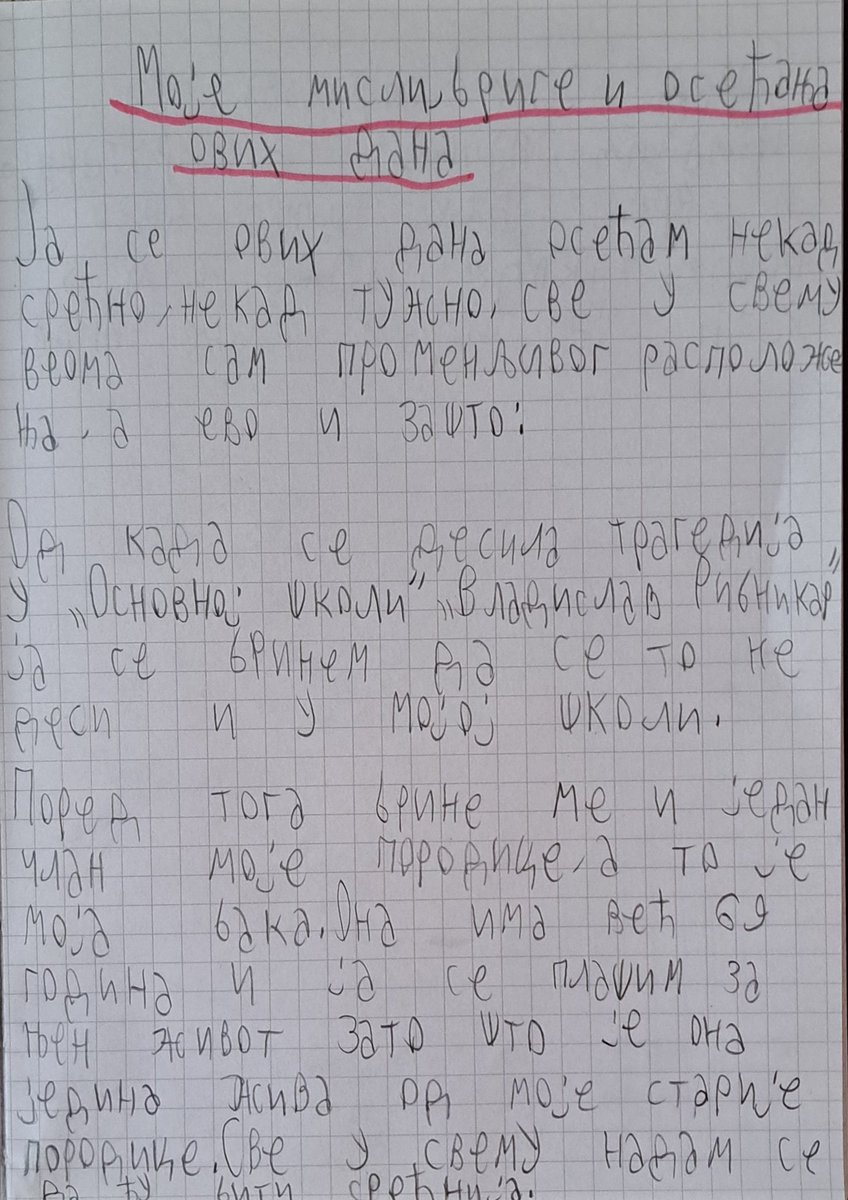 Моје мисли, бриге и осећања
ових дана
Ја се ових дана осећам некад
срећно, некад тужно, све у свему
веома сам променљивог расположе
ња, а ево и зашто:
Од када се десила трагедија
у „Основној школи" „Владислав Рибникар"
ја се бринем да се то не
деси и у мојој школи.
Поред тога брине ме и један
члан моје породице, а то је
моја бака. Она има већ 69
година и ја се плашим за
њен живот зато што је она
једина жива од моје старије
породице. Све у свему надам се
да ћу бити срећнија.